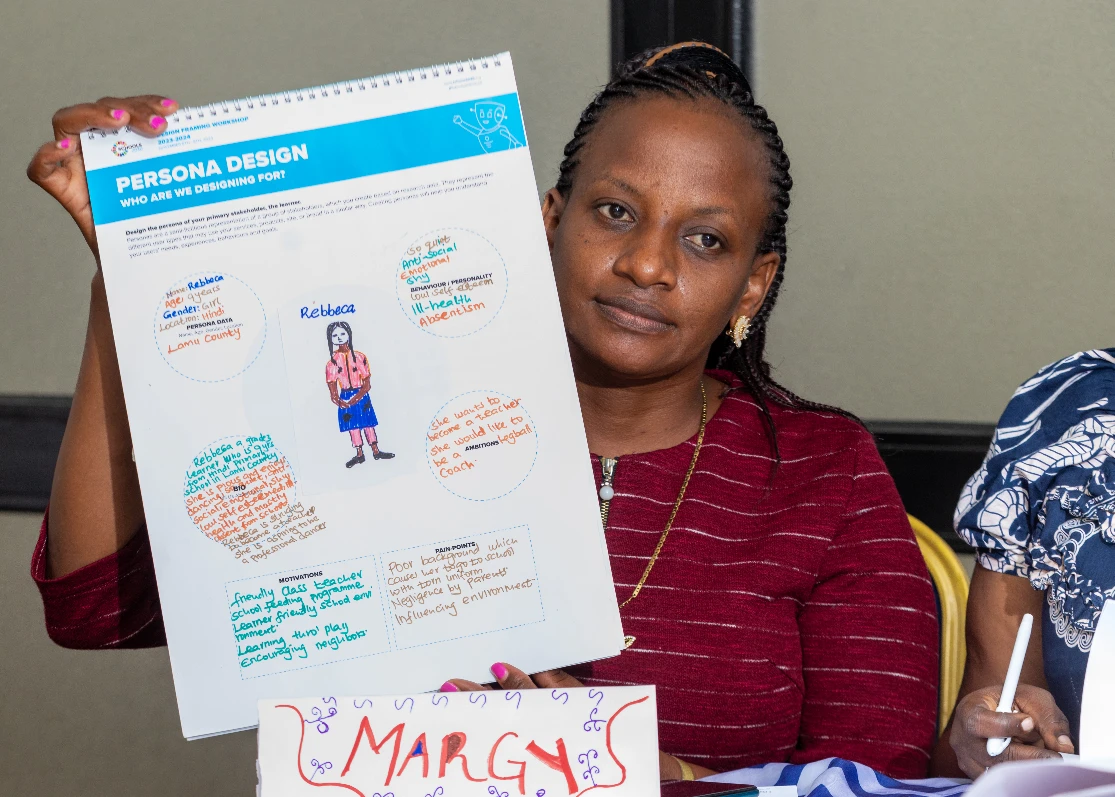 DESIGN FRAMING WORKSHOP
2023-2024
SCHOOLS
PERSONA DESIGN
WHO ARE WE DESIGNING FOR?
Design the persona of your primary stakeholder, the learner.
Name: Rebbeca
Age: 9 years
Gender: Girl
Location: Hindi
PERSONA DATA
Lamu County
Rebbeca
So quiet
Anti-social
Emotional
shy
BEHAVIOUR / PERSONALITY
low self esteem
Ill-health
Absentism
She wants to
become a teacher
she would like to
be a legball
AMBITIONS
Coach
Rebbeca a grade 5
learner who is 9 yrs
from Hindi Primary
school in Lamu County
BIO
low self esteem, ill
health and mostly
absent from school
Rebbeca is striving
to become a teacher
she is aspiring to be
a professional dancer
MOTIVATIONS
friendly Class teacher
School feeding programme
Learner friendly school envi
ronment
Learning thro' play
Encouraging neighbors
PAIN-POINTS
Poor background which
causes her to go to school
with torn uniform
Negligence by Parents
Influencing environment
MARGY